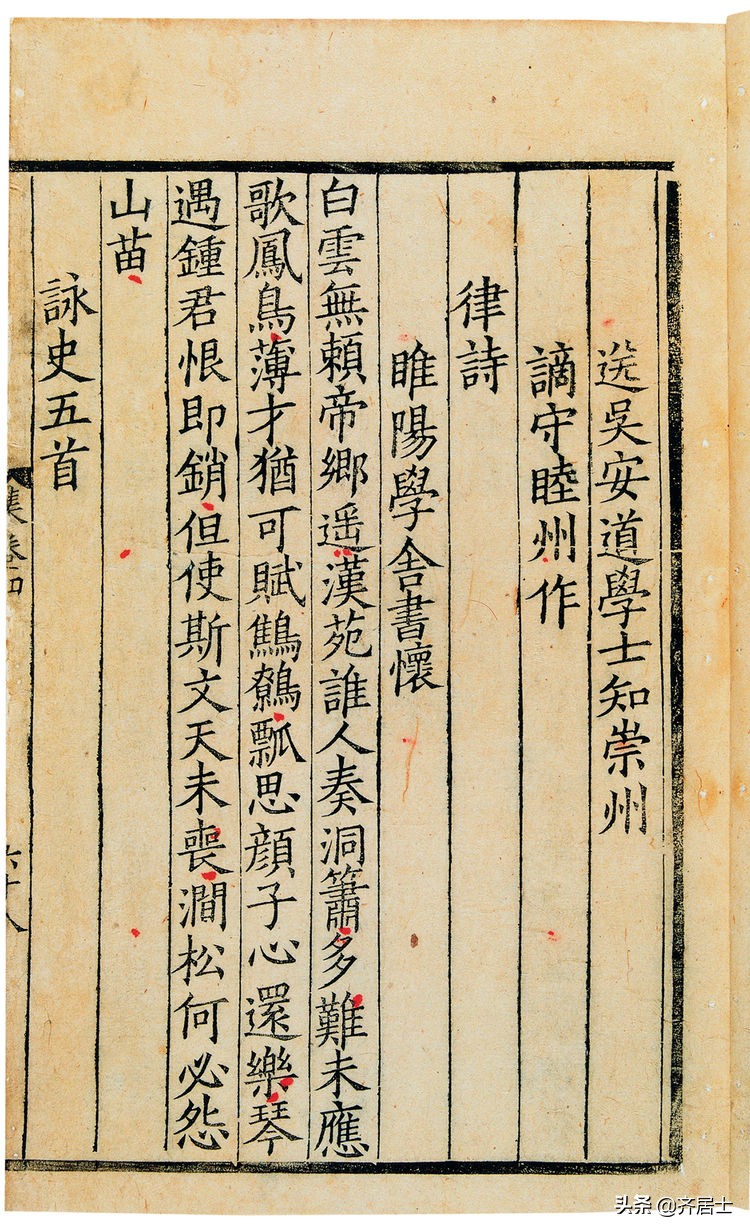 送吳安道學士知崇州
謫守睦州作
律詩
睢陽學舍書懷
白雲無頼帝鄉遥漢苑誰人奏洞簫多難未應
歌鳳鳥薄才猶可賦鷦鷯瓢思顔子心還樂琴
遇鍾君恨即銷但使斯文天未喪澗松何必怨
山苗
詠史五首
集卷
六十八
头条 @齐居士